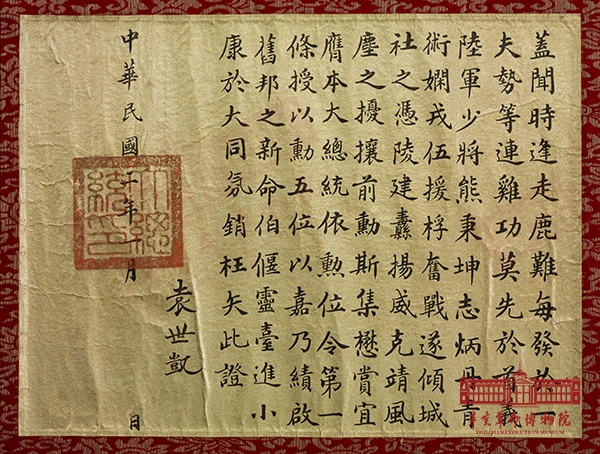 蓋聞時逢走鹿難每發於一
夫勢等連雞功莫先於首義
陸軍少將熊秉坤志炳丹青
術嫻戎伍援桴奮戰遂傾城
社之憑陵建纛揚威克靖風
塵之擾攘前勳斯集懋賞宜
膺本大總統依勲位令第一
條授以勳五位以嘉乃績啟
舊邦之新命伯偃靈臺進小
康於大同氛銷枉矢此證
袁世凱
中華民國年月日
大總統印
辛亥革命博物院
THE 1911 REVOLUTION MUSEUM